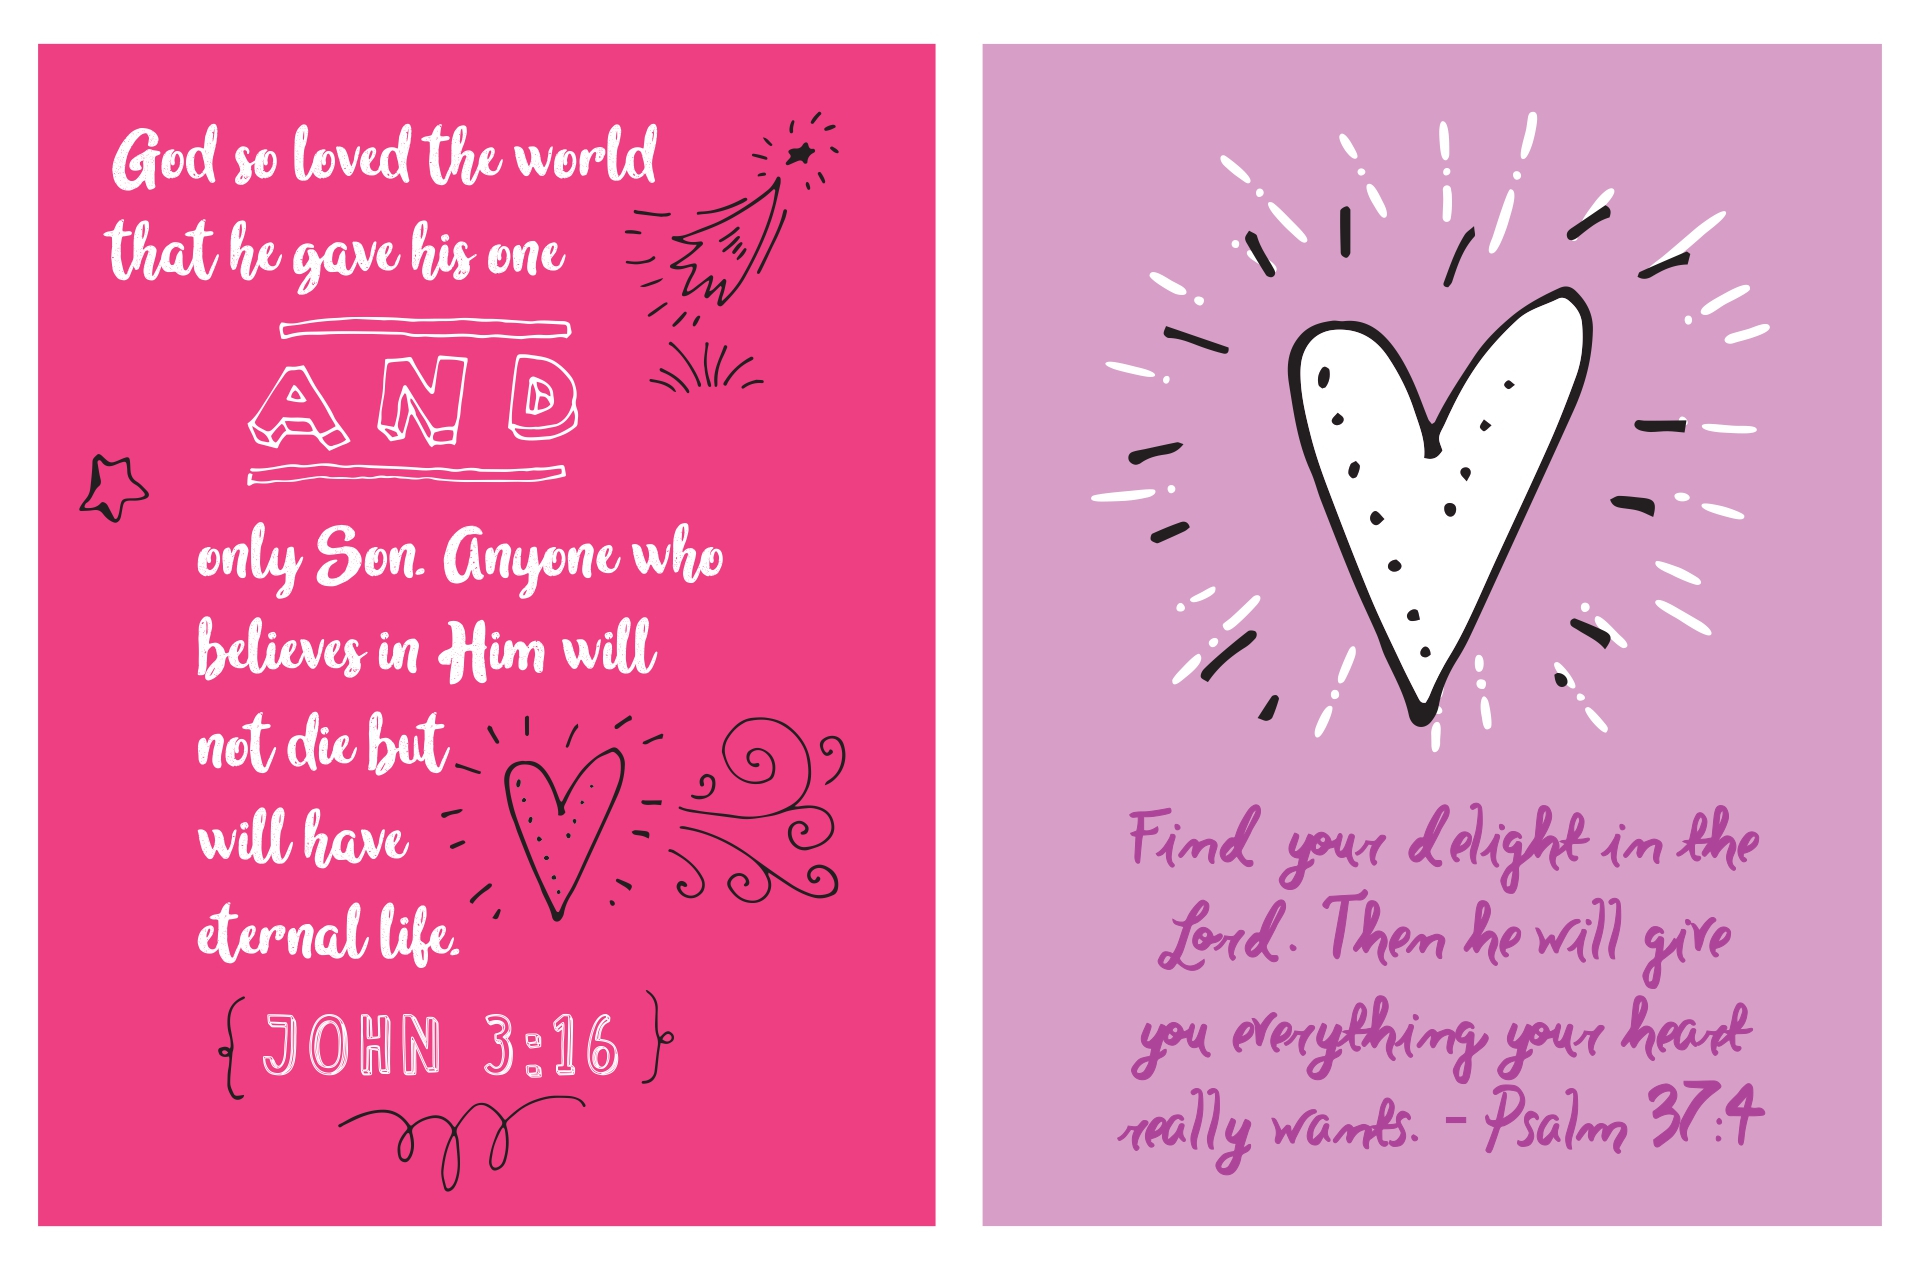 God so loved the world
that he gave his one
AND
only Son. Anyone who
believes in Him will
not die but
will have
eternal life.
{JOHN 3:16}
Find your delight in the
Lord. Then he will give
you everything your heart
really wants. - Psalm 37:4